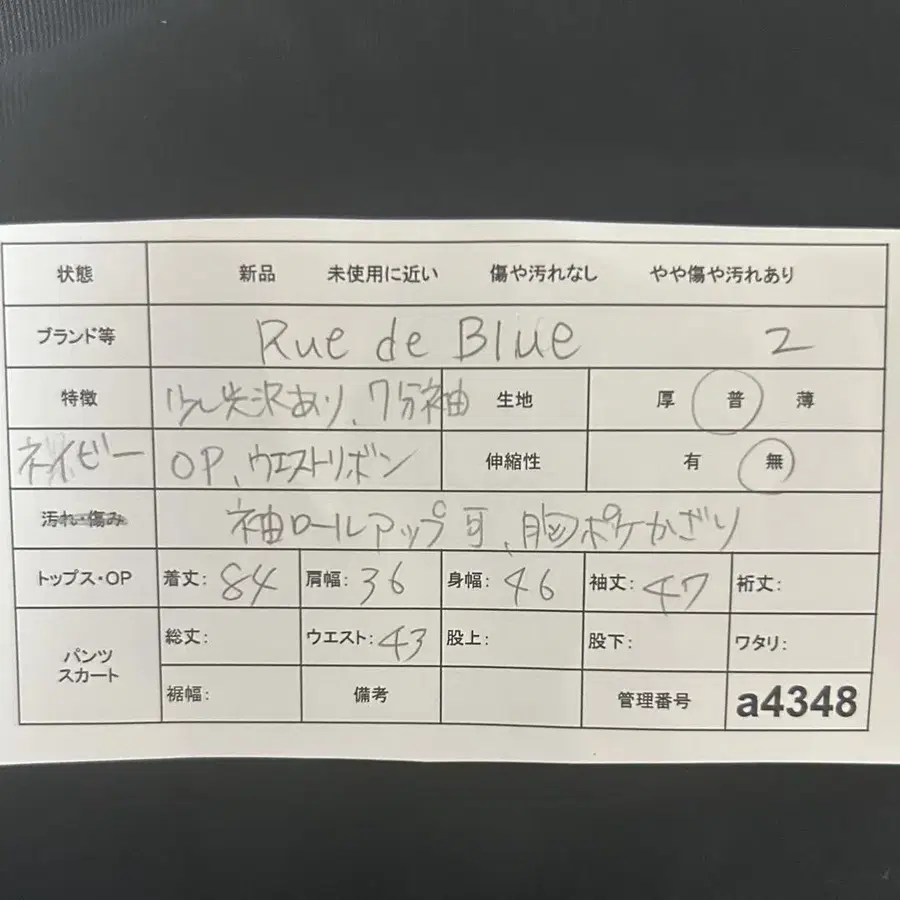 状態 新品 未使用に近い 傷や汚れなし やや傷や汚れあり
ブランド等 Rue de Blue 2
特徴 少し光沢あり、7分袖 生地 厚 普 薄
ネイビー OP、ウエストリボン 伸縮性 有 無
汚れ・傷み 袖ロールアップ可、胸ポケかざり
トップス・OP 着丈: 84 肩幅: 36 身幅: 46 袖丈: 47 裄丈:
パンツ スカート 総丈: ウエスト: 43 股上: 股下: ワタリ:
裾幅: 備考 管理番号 a4348